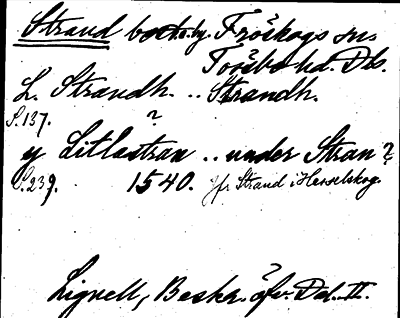 Strand bortst.by. Fröskogs sn.
Tössbo hd. Dls.
L. Strandh. .. Strandh.
S.137. ?
y Litlastran .. under Stran ?
S.239. 1540. Jfr Strand i Hesselskog.
Lignell, Beskr. öfv. Dal. II.